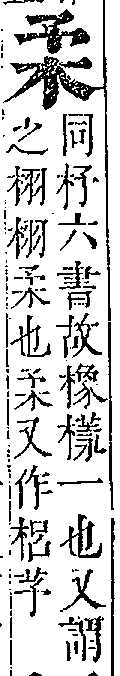 柔
同杼六書故橡樣一也又謂
之栩栩柔也柔又作梠芧